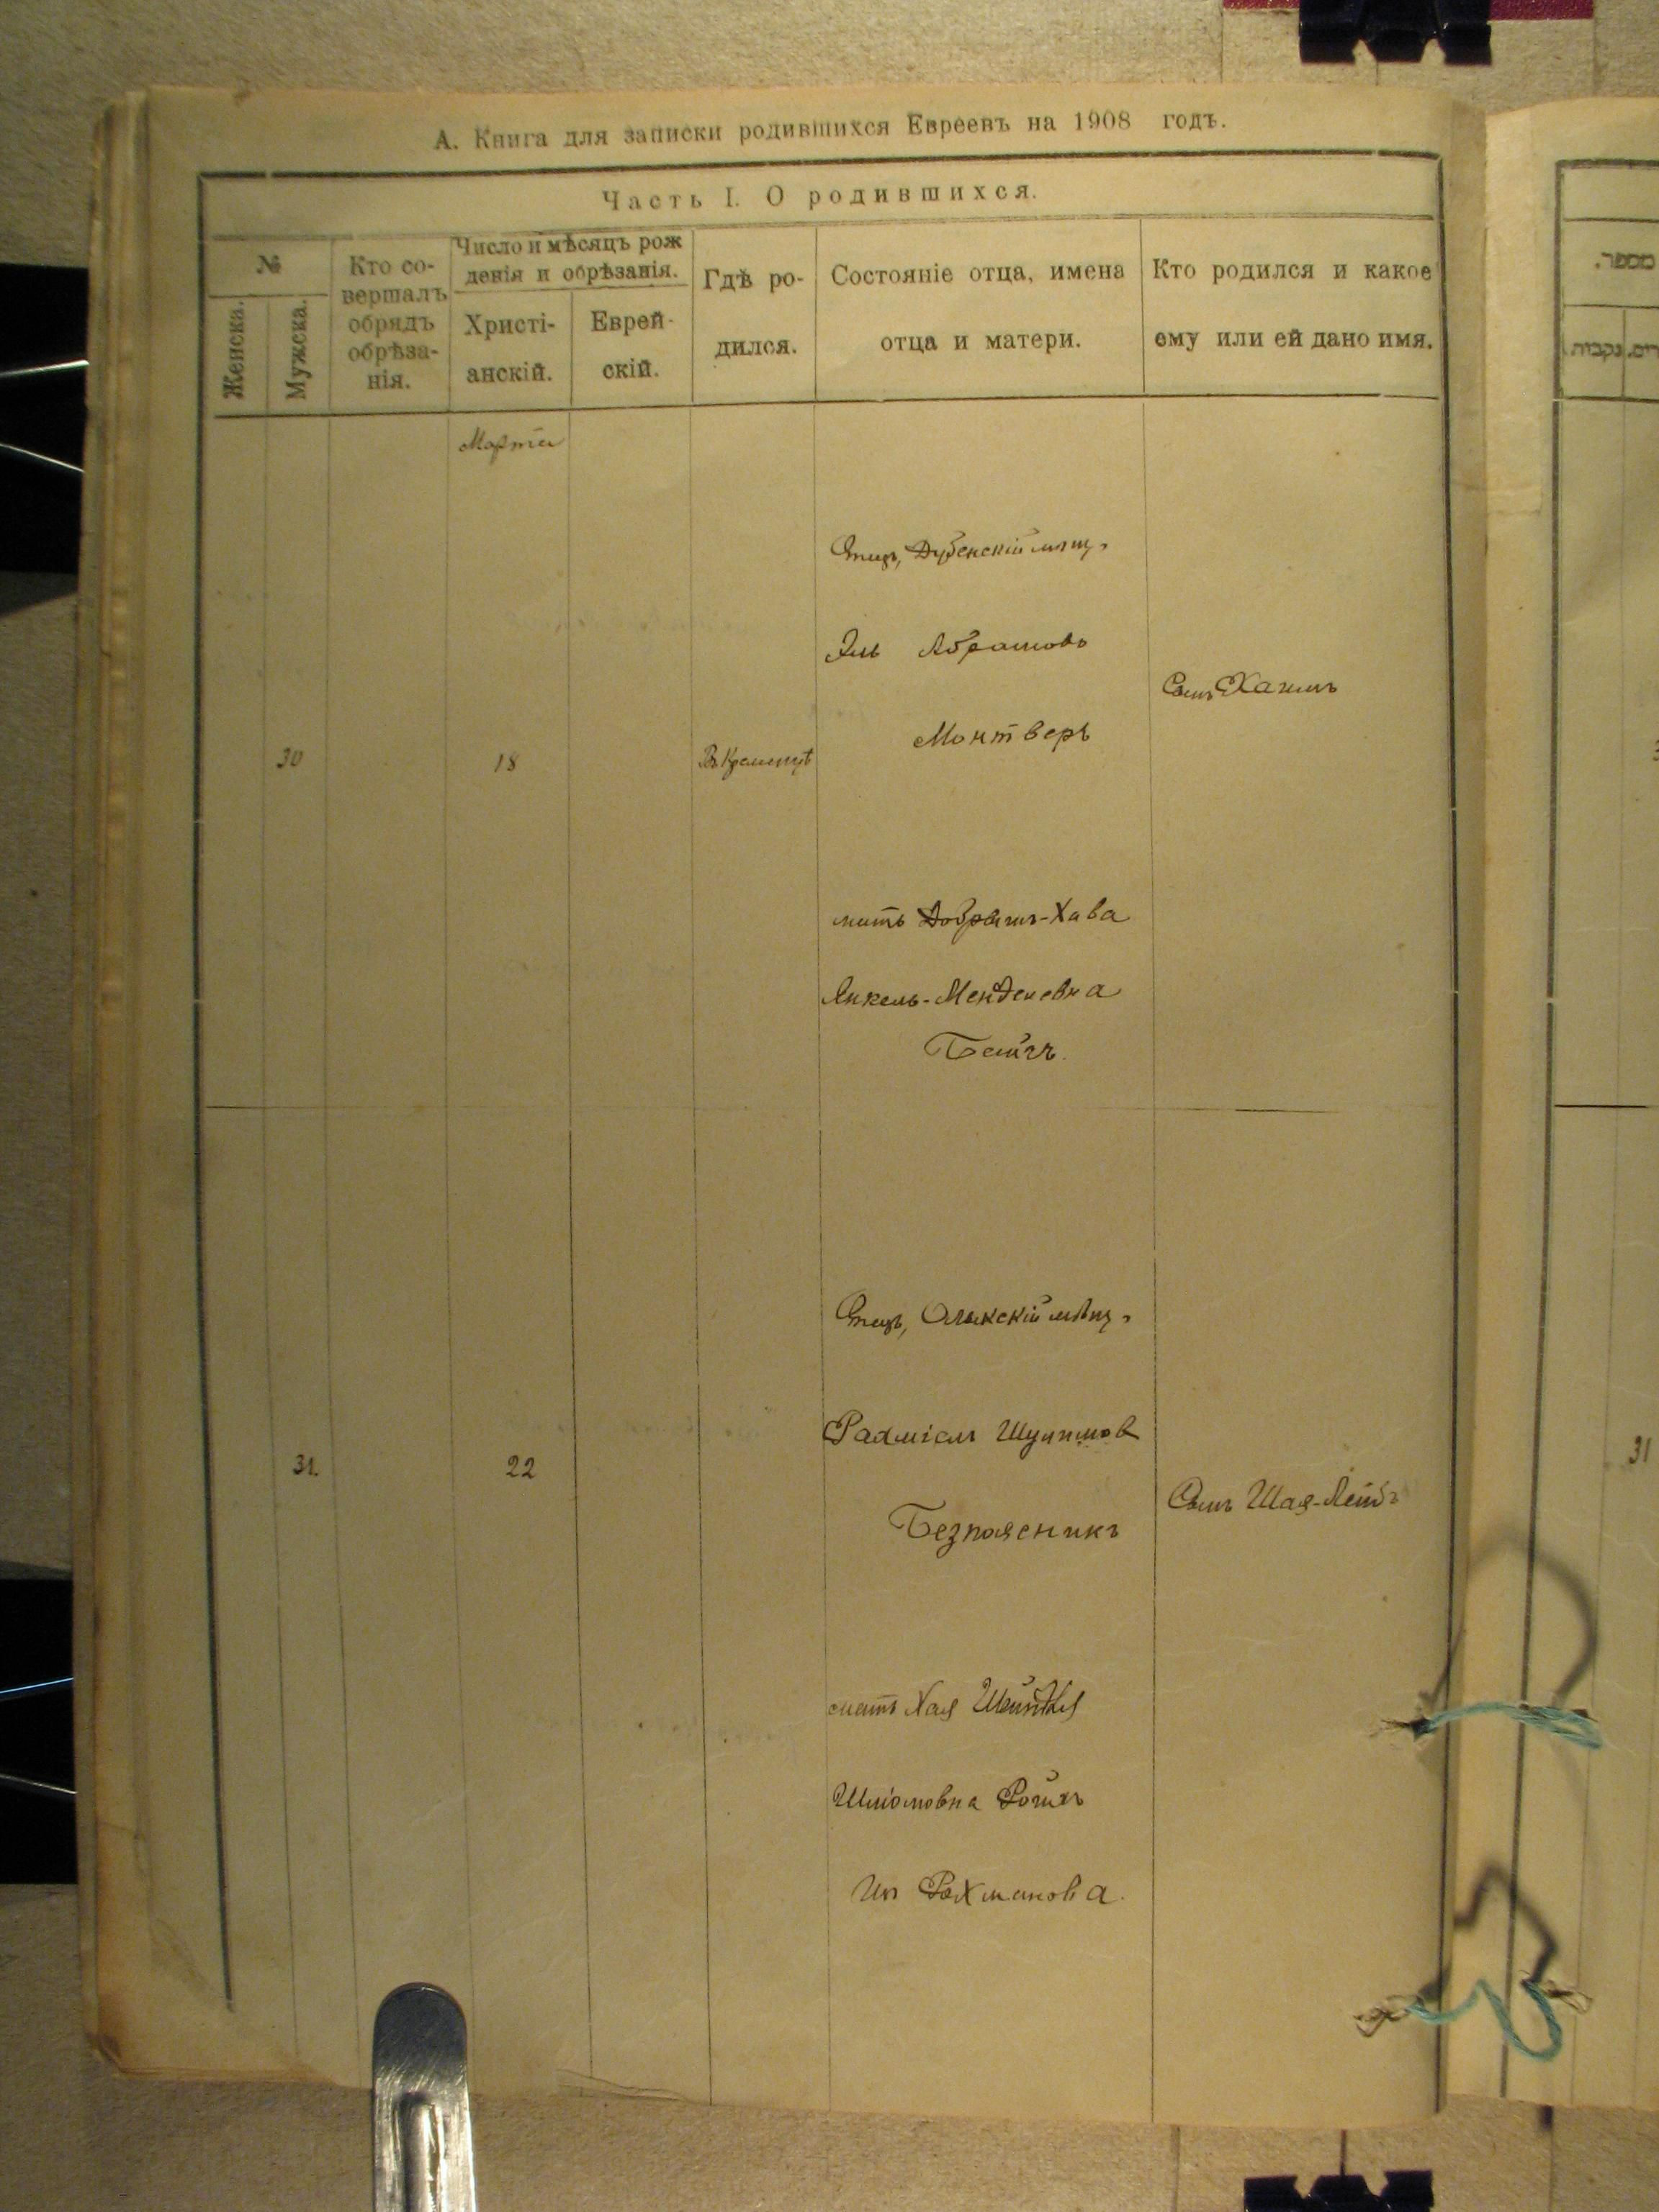 А. Книга для записки родившихся Евреевъ на 1908 годъ.
Часть I. О родившихся.
№
Женска.
Мужска.
Кто со-
вершалъ
обрядъ
обрѣза-
нія.
Число и мѣсяцъ рож
денія и обрѣзанія.
Христі-
анскій.
Еврей-
скій.
Гдѣ ро-
дился.
Состояніе отца, имена
отца и матери.
Кто родился и какое
ему или ей дано имя.
Марта
30
18
Въ Кременцѣ
Отецъ, Дубенскій мѣщ.
Абрамовъ
Монтверъ
мать Хава
Янкель-Менделевна
Сынъ Хаимъ
31.
22
Отецъ, Олыкскій мѣщ.
Безпоясникъ
мать Хая
Шліомовна
Рахманова.
Сынъ Шая-Лейбъ
מספר.
נקבות
31